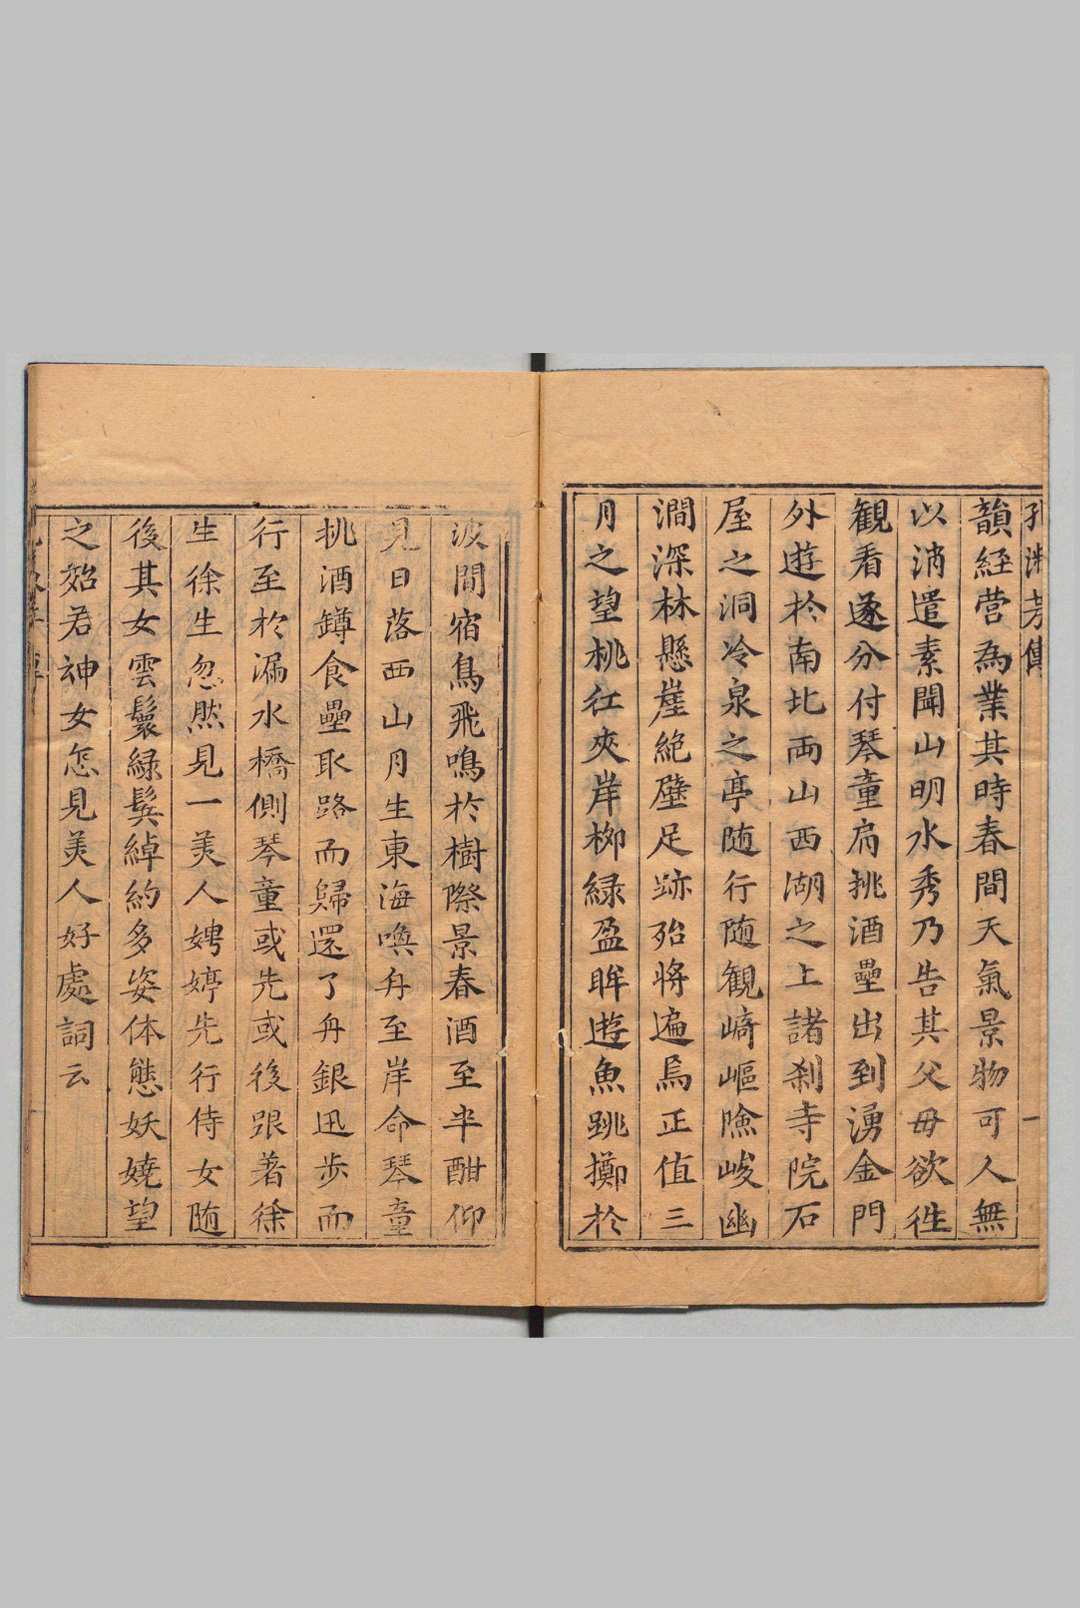 孔淑芳傳
一
韻經營為業其時春間天氣景物可人無
以消遣素聞山明水秀乃告其父母欲徃
觀看遂分付琴童肩挑酒壘出到湧金門
外遊扵南北両山西湖之上諸刹寺院石
屋之洞冷泉之亭随行随觀﨑嶇險峻幽
澗深林懸崖絶壁足跡殆將遍焉正值三
月之望桃紅夾岸栁緑盈眸遊魚跳擲於
波間宿鳥飛鳴於樹際景春酒至半酣仰
見日落西山月生東海喚舟至岸命琴童
挑酒鐏食壘取路而歸還了舟銀迅步而
行至於漏水橋側琴童或先或後跟著徐
生徐生忽然見一美人娉婷先行侍女随
後其女雲鬟緑鬂綽約多姿体態妖嬈望
之䏲若神女怎見美人好處詞云